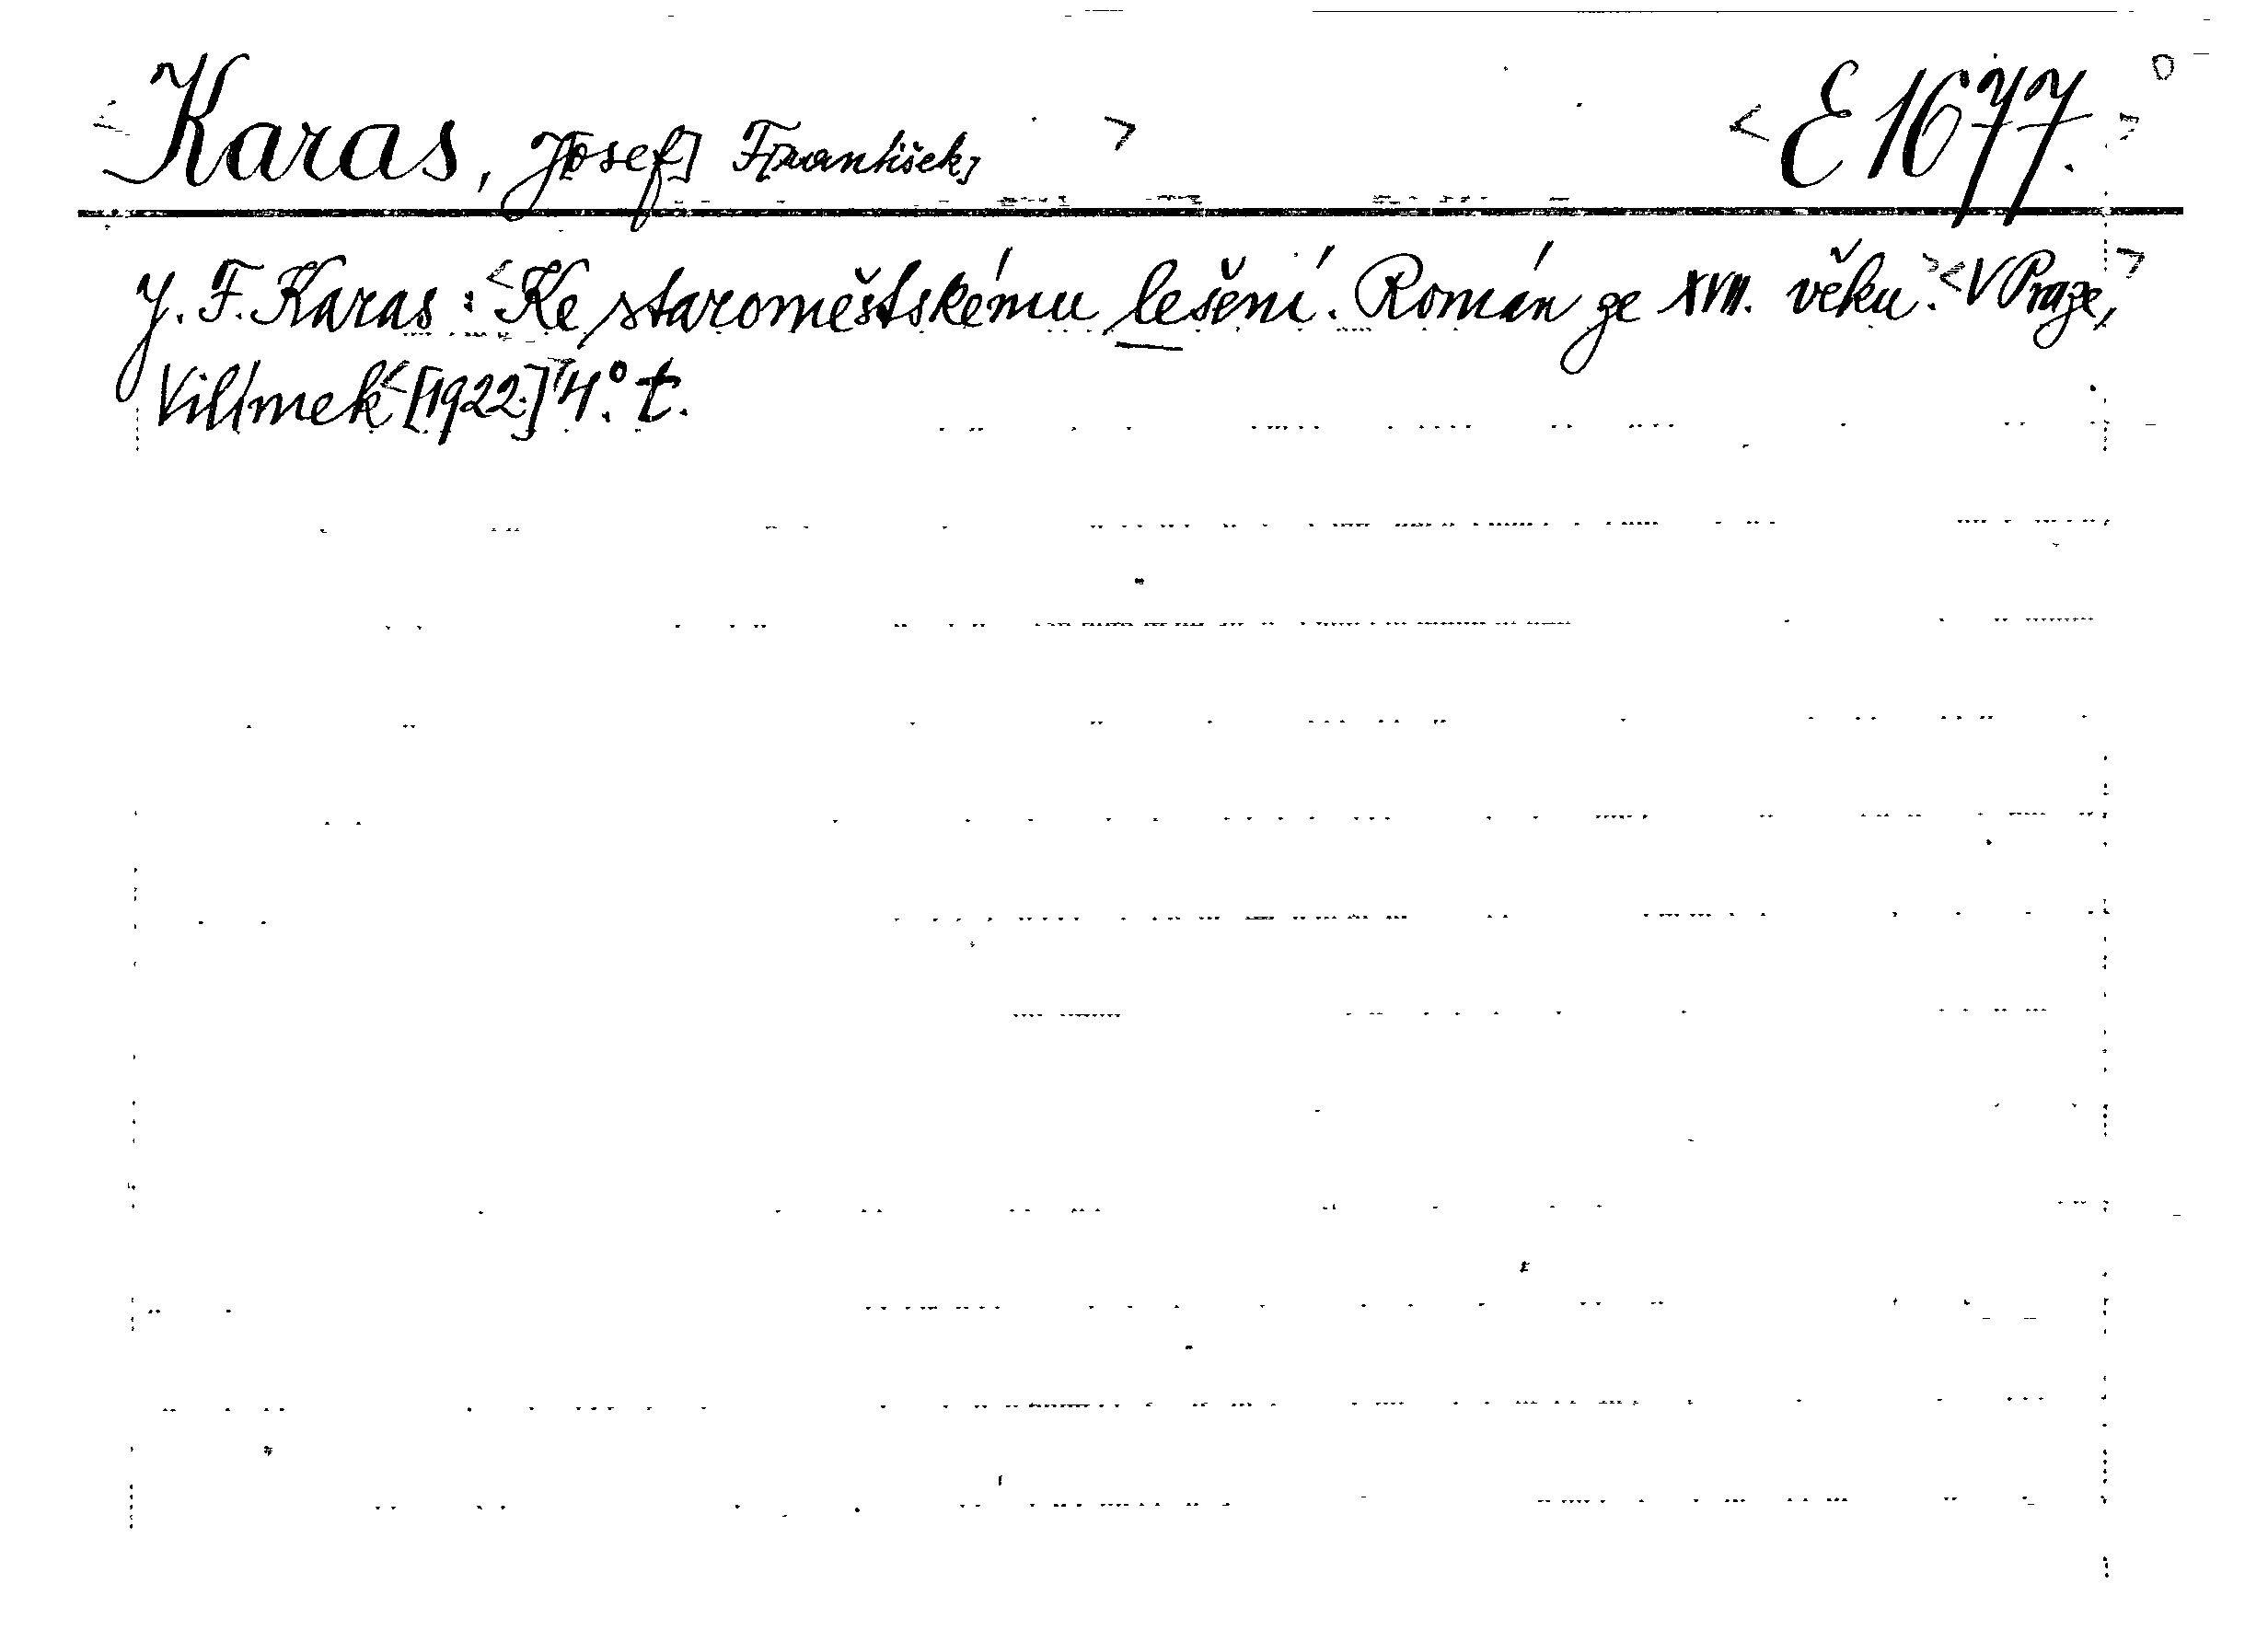 <Karas, J[osef] F[rantišek] > <E 1677.>
J. F. Karas: <Ke staroměstskému lešení. Román ze XVII. věku.> <V Praze,>
Vilímek <[1922.]> 4°. t.